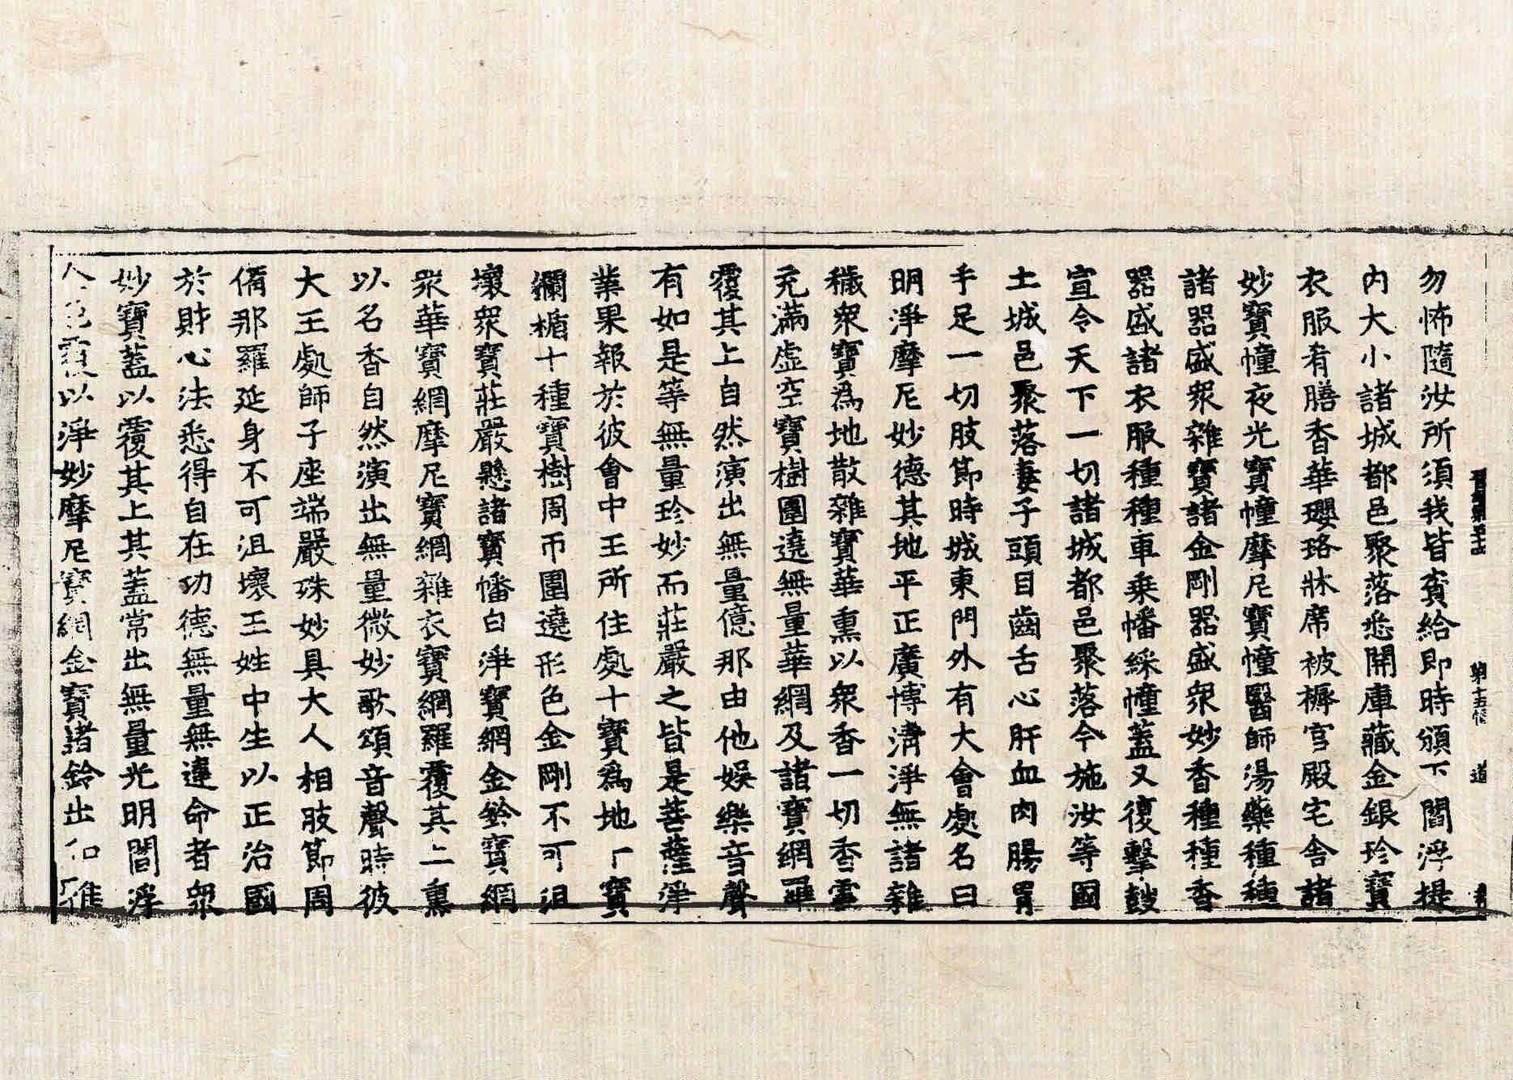 勿怖隨汝所須我皆賚給即時頒下閻浮提
內大小諸城都邑聚落悉開庫藏金銀珍寶
衣服肴膳香華瓔珞牀席被褥宮殿宅舍諸
妙寶幢夜光寶幢摩尼寶幢醫師湯藥種種
諸器盛衆雜寶諸金剛器盛衆妙香種種香
器盛諸衣服種種車乗幡綵幢蓋又復擊鼓
宣令天下一切諸城都邑聚落令施汝等國
土城邑聚落妻子頭目齒舌心肝血肉腸胃
手足一切肢節時城東門外有大會處名曰
明淨摩尼妙德其地平正廣博清淨無諸雜
穢衆寶爲地散雜寶華熏以衆香一切香雲
充滿虛空寶樹圍遶無量華網及諸寶網羅
覆其上自然演出無量億那由他娛樂音聲
有如是等無量珍妙而莊嚴之皆是菩薩淨
業果報於彼會中王所住處十寶爲地寶
欄楯十種寶樹周帀圍遶形色金剛不可沮
壞衆寶莊嚴懸諸寶幡白淨寶網金鈴寶網
衆華寶網摩尼寶網雜衣寶網羅覆其上熏
以名香自然演出無量微妙歌頌音聲時彼
大王處師子座端嚴殊妙具大人相肢節周
備那羅延身不可沮壞王姓中生以正治國
於財心法悉得自在功德無量無違命者衆
妙寶蓋以覆其上其蓋常出無量光明閻浮
色覆以淨妙摩尼寶網金寶諸鈴出和雅
第十五
道